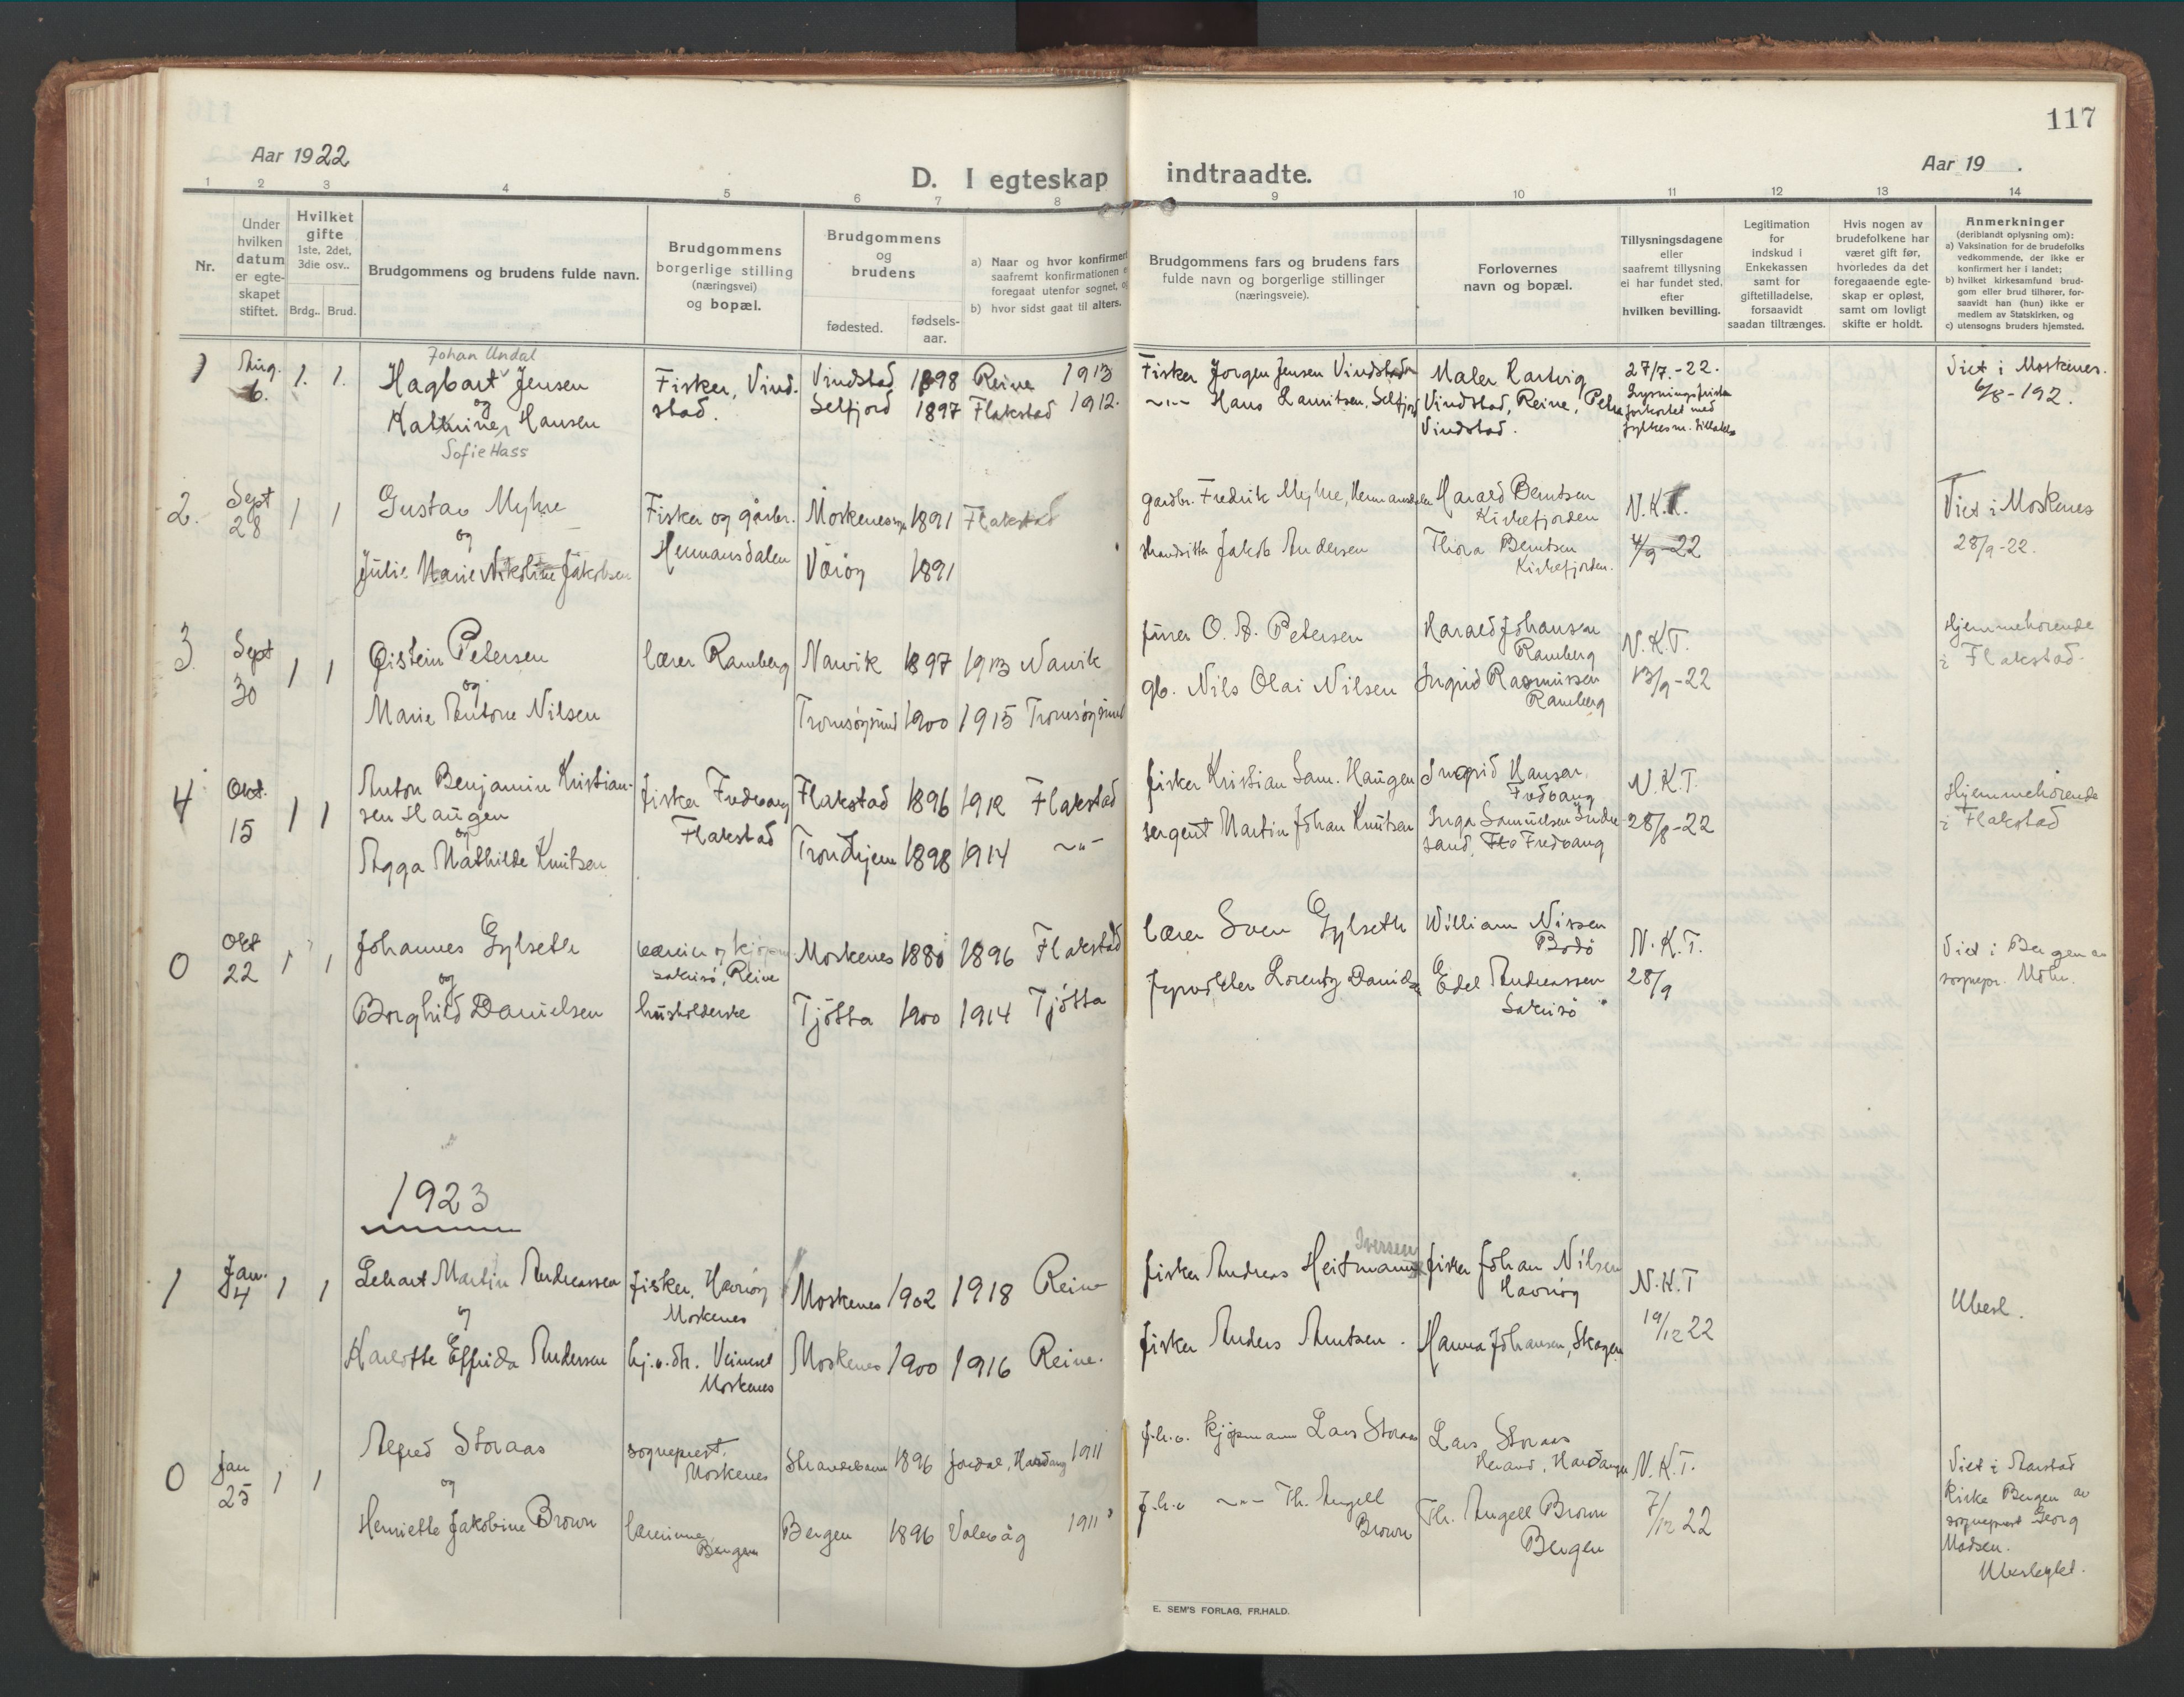 117
Aar 1922
Aar 19 .
D. I egteskap indtraadte.
1 2 3 4 5 6 7 8 9 10 11 12 13 14
Nr.
Under
hvilken
datum
er egte-
skapet
stiftet.
Hvilket
gifte
1ste, 2det,
3die osv..
Brdg.. Brud.
Brudgommens og brudens fulde navn.
Brudgommens
borgerlige stilling
(næringsvei)
og bopæl.
Brudgommens
og
brudens
fødested.
fødsels-
aar.
a) Naar og hvor konfirmert
saafremt konfirmationen
foregaat utenfor sognet,
b) hvor sidst gaat til alters.
Brudgommens fars og brudens fars
fulde navn og borgerlige stillinger
(næringsveie).
Forlovernes
navn og bopæl.
Tillysningsdagene
eller
saafremt tillysning
ei har fundet sted,
efter
hvilken bevilling.
Legitimation
for
indskud i
Enkekassen
samt for
giftetilladelse,
forsaavidt
saadan tiltrænges.
Hvis nogen av
brudefolkene har
været gift før,
hvorledes da det
foregaaende egte-
skap er opløst,
samt om lovligt
skifte er holdt.
Anmerkninger
(deriblandt oplysning om):
a) Vaksination for de brudefolks
vedkommende, der ikke er
konfirmert her i landet;
b) hvilket kirkesamfund brud-
gom eller brud tilhører, for-
saavidt han (hun) ikke er
medlem av Statskirken, og
c) utensogns bruders hjemsted.
1 Aug. 6. 1. 1.
Johan Undal
Hagbart Jensen
og
Hansen
Sofie Hass
Fisker, Vind-
stad.
Vindstad 1898 Reine 1913
Selfjord 1897 Flakstad 1912.
Fisker Jørgen Jensen Vindstad
~"~ Hans Lauritsen, Selfjord
Maler Hartvig
Vindstad, Reine, Petra
Vindstad.
27/7.-22.
Lysningsfristen
forkortet med
fylkesm. tillatelse
Viet i Moskenes.
6/8-192.
2. Sept 28 1 1
Gustav Myhre
og
Julie Marie Nikoline Jakobsen
Fisker og gårbr.
Hermansdalen
Moskenes 1891 Flakstad
Værøy 1891
gardbr. Fredrik Myhre, Hermansdalen
strandsitter Jakob Andersen
Harald Berntsen
Kirkefjorden
Thora Berntsen
Kirkefjorden.
N.K.T.
4/9-22
Viet i Moskenes
28/9-22.
3 Sept 30 1 1
Øistein Petersen
og
Marie Antone Nilsen
lærer Ramberg
Narvik 1897 1913 Narvik
Tromsøysund 1900 1915 Tromsøysund
O. A. Petersen
gb. Nils Olai Nilsen
Harald Johansen
Ramberg
Ingrid Rasmussen
Ramberg
N.K.T.
13/9-22
Hjemmehørende
i Flakstad.
4 Okt. 15 1 1
Anton Benjamin Kristian-
sen Haugen
og
Agga Mathilde Knutsen
fisker Fredvang
Flakstad
Flakstad 1896 1912 Flakstad
Trondhjem 1898 1914 ~"~
fisker Kristian Sam. Haugen
sergent Martin Johan Knutsen
Ingrid Hansen
Fredvang
Inga Samuelsen Indre
sand, Fredvang
N.K.T.
28/8-22
Hjemmehørende
i Flakstad
0 Okt 22 1 1
Johannes Gylseth
og
Borghild Danielsen
Sakrisø, Reine
husholderske
Moskenes 1880 1896 Flakstad
Tjøtta 1900 1914 Tjøtta
lærer Sven Gylseth
Lorentz Danielsen
William Nissen
Bodø
Edel Andreassen
Sakrisø
N.K.T.
28/9
Viet i Bergen av
sognepr. Mohr.
1923
1 Jan. 4 1 1
Lehart Martin Andreassen
og
Karlotte Elfrida Andersen
fisker, Havnøy
Moskenes
hj.v.dt. Veines
Moskenes
Moskenes 1902 1918 Reine
Moskenes 1900 1916 Reine.
Iversen
fisker Andreas Heitmann
fisker Anders Arntsen.
fisker Johan Nilsen
Havnøy
Hanna Johansen, Skagen
N.K.T
19/12 22
Ubesl.
0 Jan 25 1 1
Alfred Storaas
og
Henriette Jakobine Brown
sogneprest
Moskenes
lærerinne
Bergen
Strandebarm 1896 Jondal, Hardang 1911
Bergen 1896 Volevåg 1911
f.h.v. kjøpmann Lars Storaas
f.h.v ~"~ Th. Angell
Brown
Lars Storaas
Herand, Hardanger
Th. Angell Brown
Bergen
N.K.T.
7/12 22
Viet i Aarstad
Kirke Bergen av
sogneprest Georg
Madsen.
Ubeslegtet.
E. SEM'S FORLAG, FR.HALD.